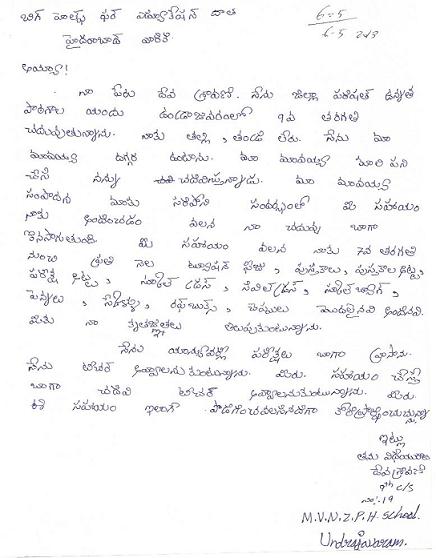 బిగ్ హెల్ప్ ఫర్ ఎడ్యుకేషన్ దాత
6-5
హైదరాబాద్ వారికి
అయ్యా!
నా పేరు దేవ గ్రావణి. నేను జిల్లా పరిషత్ ఉన్నత
పాఠశాల యందు ఉండ్రాజవరంలో 9వ తరగతి
చదువుతున్నాను. నాకు తల్లి, తండ్రి లేరు. నేను మా
మావయ్య దగ్గర ఉంటాను. మా మావయ్య పని
చేసి నన్ను చదివిస్తున్నాడు. మా మావయ్య
సంపాదన మాకు సరిపోని సందర్భంలో మీ సహాయం
నాకు అందించడం వలన నా చదువు బాగా
కొనసాగుతుంది. మీ సహాయం వలన నాకు 7వ తరగతి
నుంచి ప్రతి నెల ట్యూషన్ ఫీజు, పుస్తకాలు, పుస్తకాల కిట్టు,
పరీక్ష కిట్టు, స్కూల్ డ్రస్, సివిల్ డ్రస్, స్కూల్ బ్యాగ్,
పెన్నులు, రఫ్ బుక్స్, చెప్పులు మొదలైనవి అందినవి.
మీకు నా కృతజ్ఞతలు తెలుపుకుంటున్నాను.
నేను పరీక్షలు బాగా వ్రాసాను.
నేను టీచర్ అవ్వాలనుకుంటున్నాను. మీరు సహాయం చేస్తే
బాగా చదివి టీచర్ అవ్వాలనుకుంటున్నాను. మీరు
ఈ సహాయం ఇలాగే
ఇట్లు
తమ విధేయురాలు
దేవ గ్రావణి
9th c/s
నెం: 19
M.V.N.Z.P.H School.
Undrajavaram.